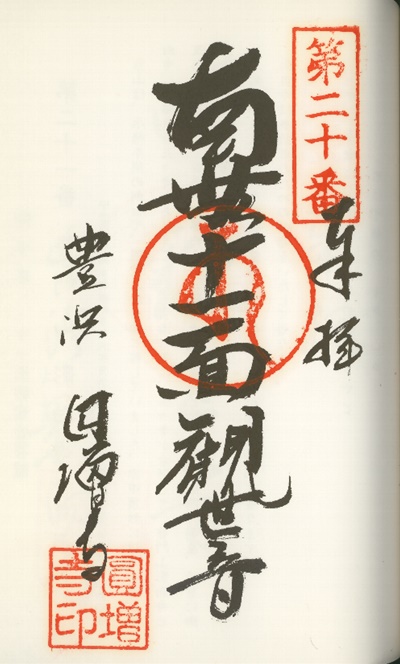 第二十番
奉拝
南無十一面觀世音
豊浜 圓増寺
圓増寺印